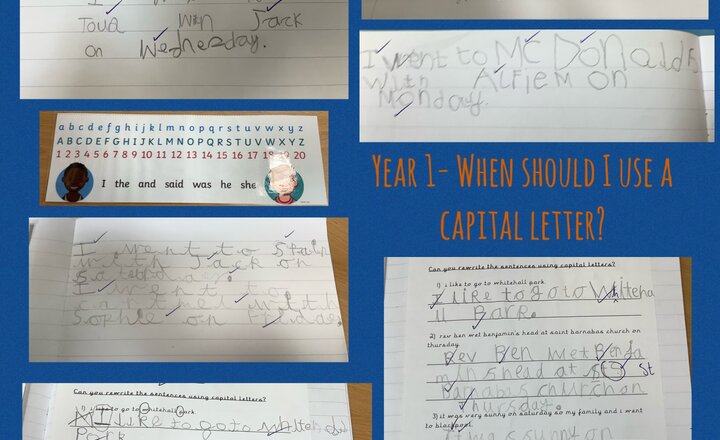 Tour with Jack
on Wednesday.
I went to McDonalds
with AlfieM on
Monday.
a b c d e f g h i j k l m n o p q r s t u v w x y z
A B C D E F G H I J K L M N O P Q R S T U V W X Y Z
1 2 3 4 5 6 7 8 9 10 11 12 13 14 15 16 17 18 19 20
I the and said was he she
YEAR 1- WHEN SHOULD I USE A
CAPITAL LETTER?
I went to Spain
with Jack on
I went to
Cartmel with
Sophie on Friday.
Can you rewrite the sentences using capital letters?
1) i like to go to whitehall park.
I like to go to Whiteha
ll Park.
2) rev ben wet benjamin's head at saint barnabas church on
thursday.
Rev Ben wet Benja
mins head at St
Barnabas church on
Thursday.
3) it was very sunny on saturday so my family and i went
to blackpool.
It was sunny on
Can you rewrite the sentences using capital letters?
1) i like to go to whitehall park.
I like to go to Whitehall
Park